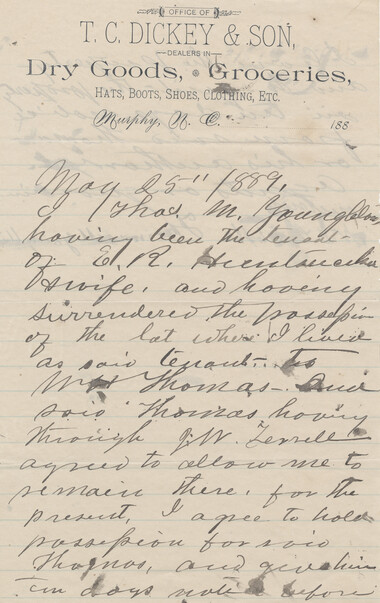 OFFICE OF
T. C. DICKEY & SON,
DEALERS IN
Dry Goods, Groceries,
HATS, BOOTS, SHOES, CLOTHING, ETC.
Murphy, N. C. 188
May 25" 1889.
I Thos. M. Young
having been the tenant
of E. R.
& wife, and having
surrendered the possession
of the lot where I lived
as said tenant to
WH Thomas and
said Thomas having
through J.W. Terrell
agreed to allow me to
remain there, for the
present, I agree to hold
possession for said
Thomas, and give him
Ten days note before